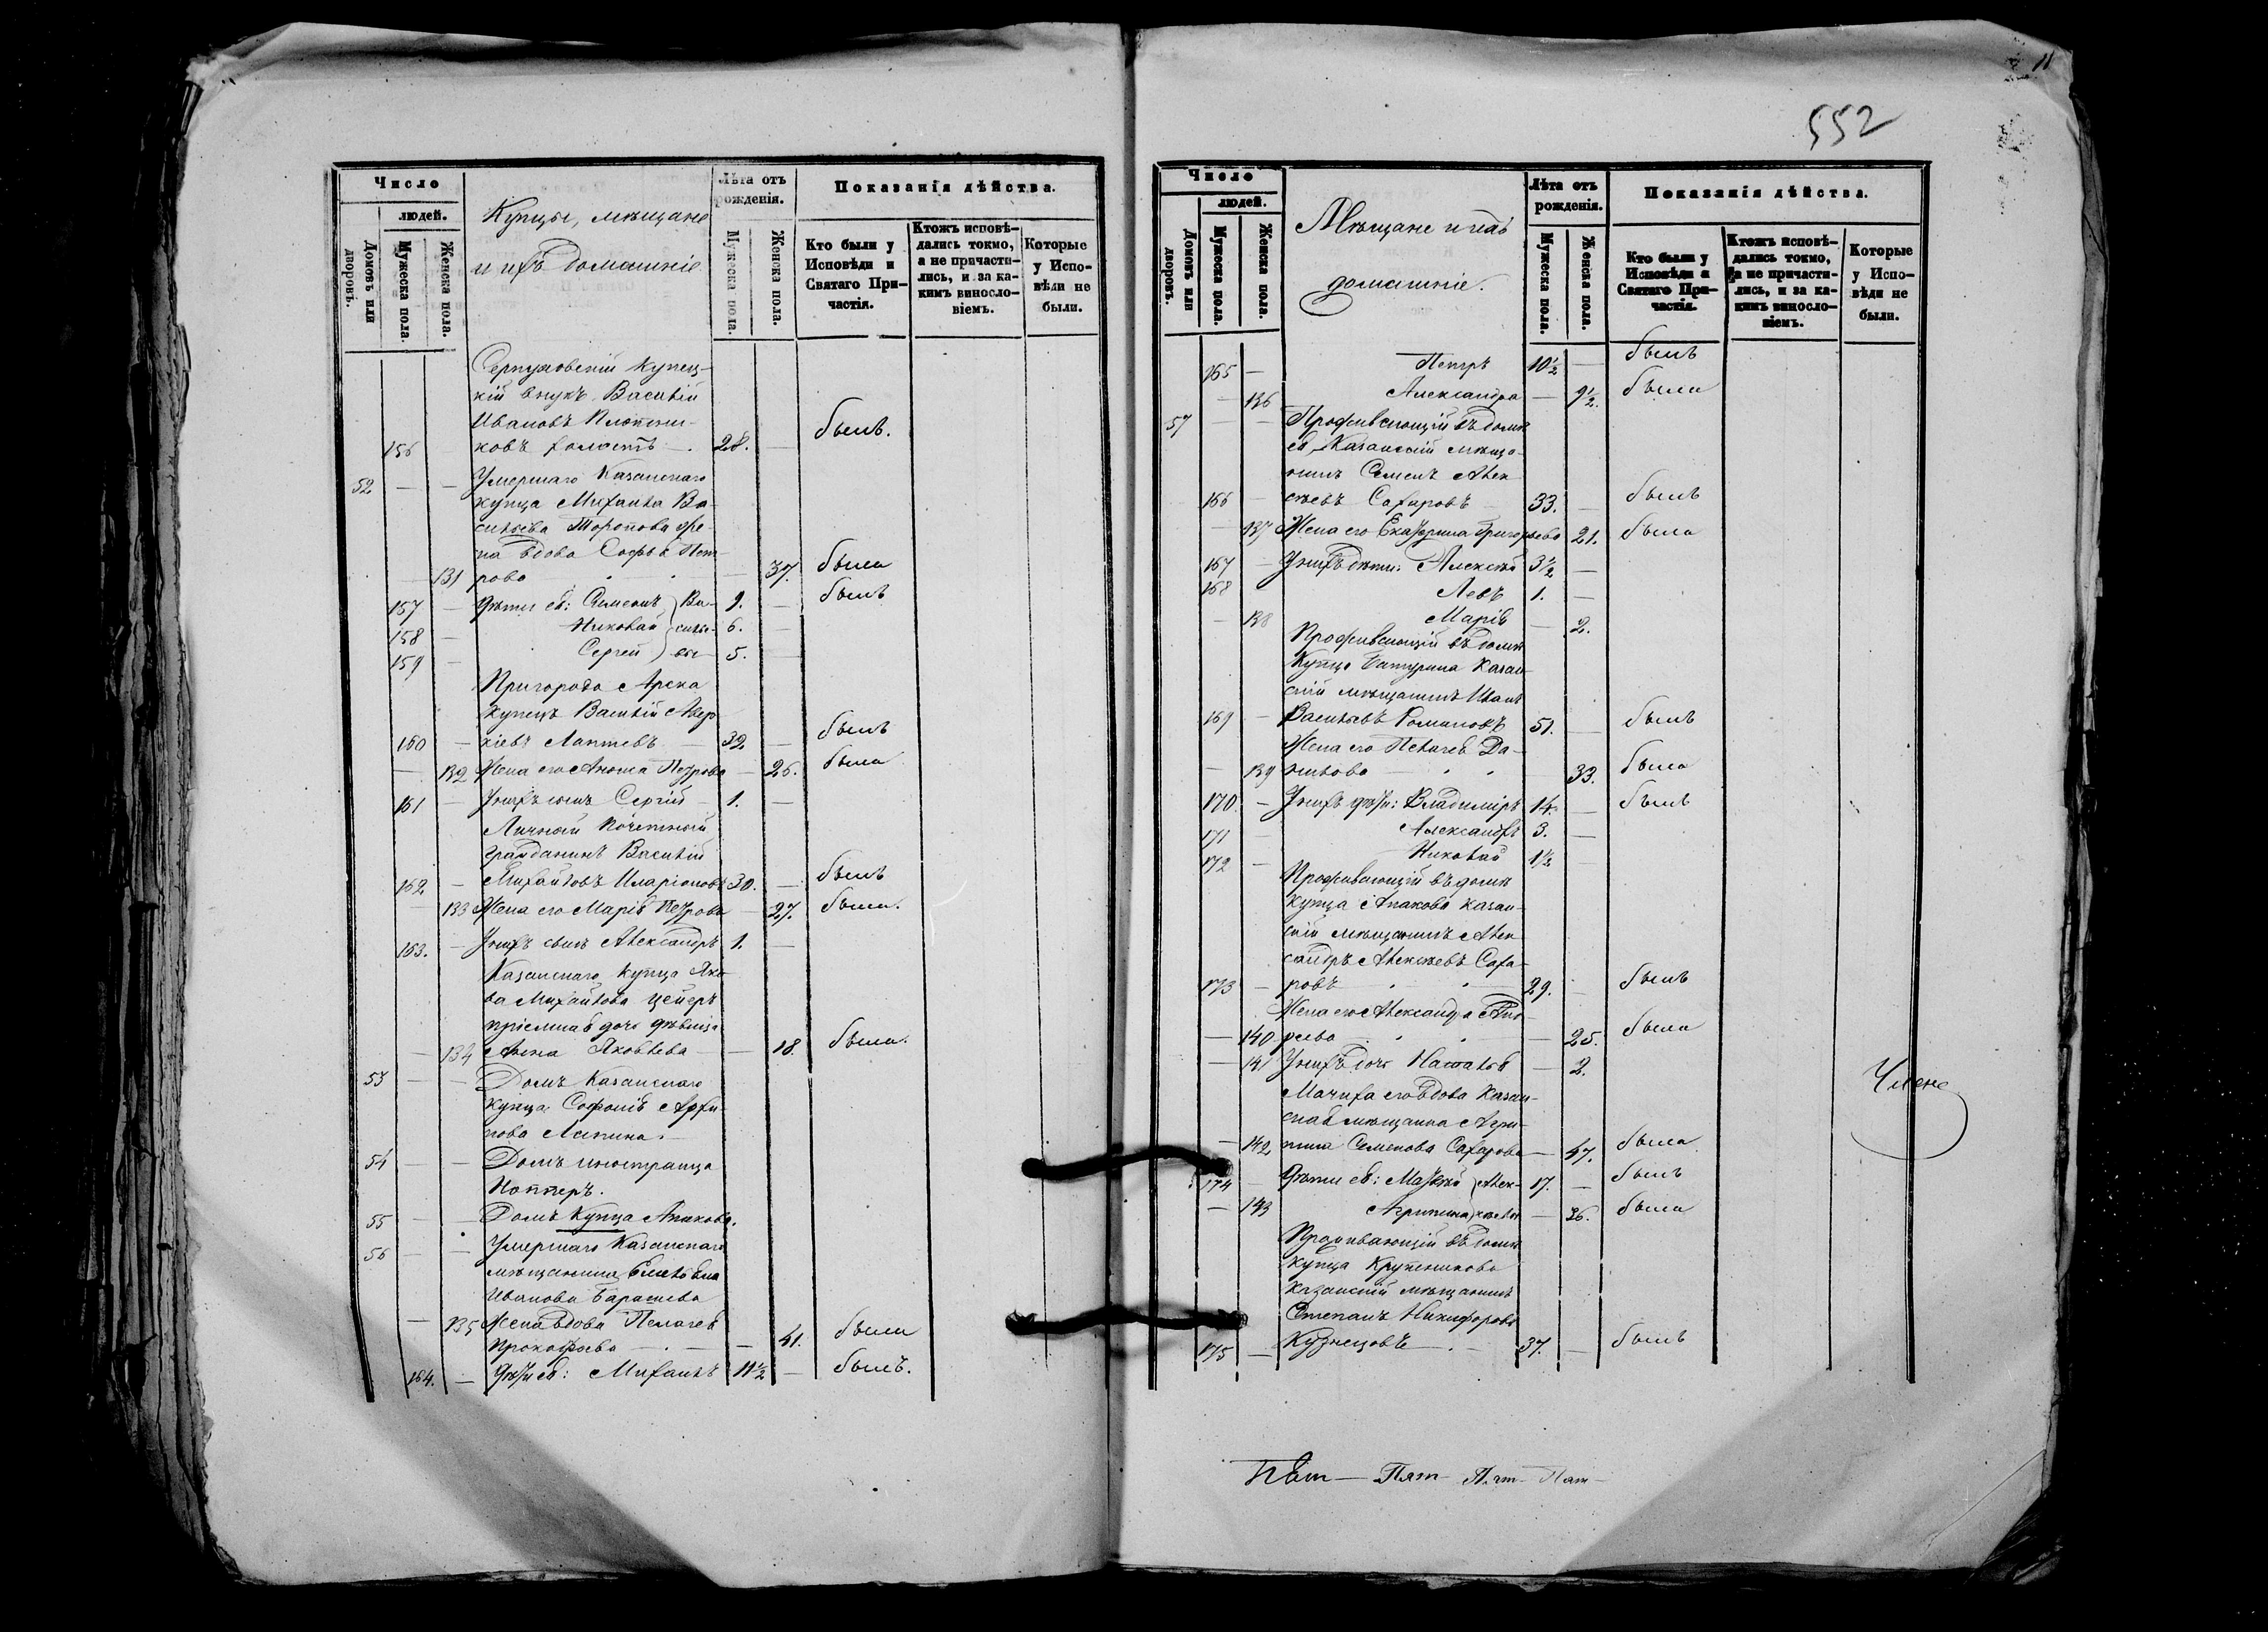 11
552
Число
людей.
Домовъ или дворовъ.
Мужеска пола.
Женска пола.
Купцы, мѣщане
и ихъ домашніе
Лѣта отъ рожденія.
Мужеска пола.
Женска пола.
Показанія дѣйства.
Кто были у Исповѣди и Святаго Причастія.
Ктожъ исповѣдались токмо, а не причастились, и за какимъ винословіемъ.
Которые у Исповѣди не были.
Серпуховскій купец-
кій внукъ Василій
Ивановъ Плотни-
156 ковъ холостъ — 28. — былъ.
52 — — Умершаго Казанскаго
купца Михаила Ва-
сильева Торопова же-
на вдова Софья Пет-
131 рова — 37. была
157 — Дѣти ея: Семенъ } Ва- 9. — былъ
158 — Николай } силье- 6. —
159 — Сергей } вы 5. —
Пригорода Арска
купецъ Василій Авер
160 — кіевъ Лаптевъ — 32. — былъ
— 132 Жена его Анна Петрова — 26. была
161 — У нихъ сынъ Сергій 1. —
Личный почетный
гражданинъ Василій
162 — Михайловъ Иларіоновъ 30. — былъ
133 Жена его Марія Петрова — 27. была.
163. — У нихъ сынъ Александръ 1. —
Казанскаго купца Яко
ва Михайлова
пріемная дочь дѣвица
— 134 Анна Яковлева — 18. была.
53 — — Домъ Казанскаго
купца Софонія Архи
пова Ляпина.
54 — — Домъ иностранца
55 — — Домъ купца Апакова.
56 — — Умершаго Казанскаго
мѣщанина
Иванова
— 135 Жена вдова Пелагея
Прокофьева — 41. была
164. — Дѣти ея: Михаилъ 11½ — былъ.
Число
людей.
Домовъ или дворовъ.
Мужеска пола.
Женска пола.
Мѣщане и ихъ
домашніе.
Лѣта отъ рожденія.
Мужеска пола.
Женска пола.
Показанія дѣйства.
Кто были у Исповѣди и Святаго Причастія.
Ктожъ исповѣдались токмо, а не причастились, и за какимъ винословіемъ.
Которые у Исповѣди не были.
165 — Петръ 10½ — былъ
— 136 Александра — 9½. была
57 — — Проживающій въ домѣ
ея Казанскій мѣща-
нинъ Семенъ Алек
166 — сѣевъ Сахаровъ 33. — былъ
— 137 Жена его Екатерина Григорьева 21. была
167 — У нихъ дѣти: Алексѣй 3½ —
168 Левъ 1. —
— 138 Марія — 2.
Проживающій въ домѣ
купца Батурина Казан-
скій мѣщанинъ Иванъ
169 — Васильевъ Романовъ 51. — былъ
Жена его Пелагея Да-
— 139 нилова — 33. была
170. — У нихъ дѣти: Владиміръ 14. — былъ
171 — Александръ 3. —
172 — Николай 1½ —
Проживающій въ домѣ
купца Апакова Казан-
скій мѣщанинъ Алек
сандръ Алексѣевъ Саха-
173 — ровъ — 29. — былъ
Жена его Александра Анд-
— 140 реева — 25. была
— 141 У нихъ дочь Наталья — 2.
Мачиха его вдова Казан-
ская мѣщанка Агри-
— 142 пина Семенова Сахарова — 47. была
174 — Дѣти ея: Матвѣй } Алек- 17. — былъ
— 143 Агрипина } сѣевы — 26. была
Проживающій въ домѣ
купца Крупеникова
Казанскій мѣщанинъ
Степанъ Никифоровъ
175 — Кузнецовъ — 37. — былъ
Члене
Пят — Пят — Пят — Пят —